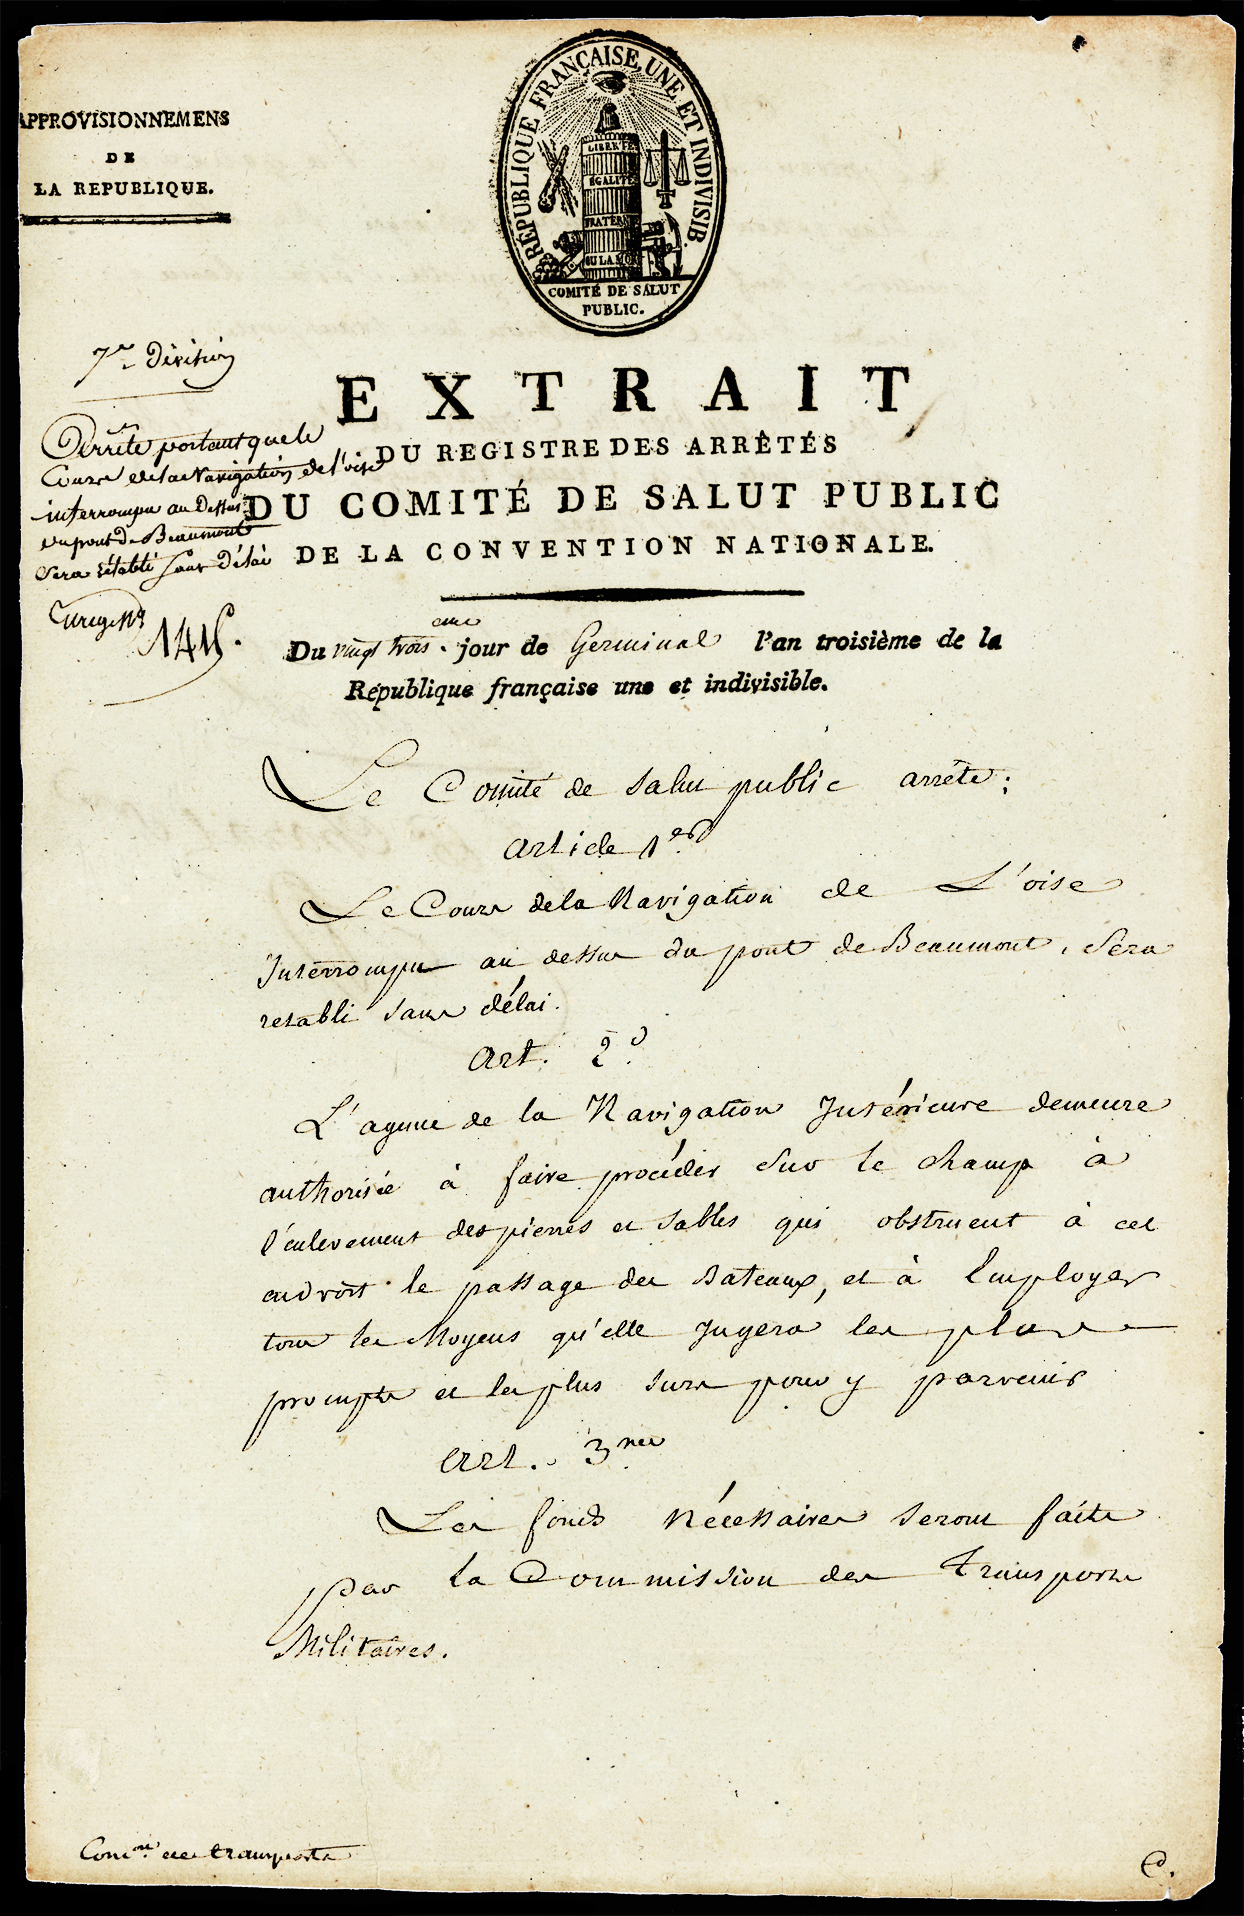 APPROVISIONNEMENS
DE
LA REPUBLIQUE.
RÉPUBLIQUE FRANÇAISE, UNE ET INDIVISIB.
LIBERTÉ
ÉGALITÉ
FRATERN
OU LA MOR
COMITÉ DE SALUT
PUBLIC.
7e Division
Arrêté portant que le
Cours de la Navigation de l'oise
interrompu au Dessus
du pont de Beaumont
Sera rétabli Sans Délai
EXTRAIT
DU REGISTRE DES ARRÊTÉS
DU COMITÉ DE SALUT PUBLIC
DE LA CONVENTION NATIONALE.
Du vingt trois eme jour de Germinal l'an troisième de la
République française une et indivisible.
Le Comité de Salut public arrête:
Article 1er
Le Cours de la Navigation de L'oise
Interrompu au dessus du pont de Beaumont, Sera
retabli Sans délai.
Art. 2d
L'agence de la Navigation Intérieure demeure
authorisée à faire procéder Sur le Champ à
l'enlevement des pierres et Sables qui obstruent à cet
endroit le passage des Bateaux, et à Employer
tous les Moyens qu'elle Jugera les plus
prompts et les plus Surs pour y parvenir
Art. 3me
Les fonds nécessaires Seront faits
par la Commission des Transports
Militaires.
Comon des transports
C.